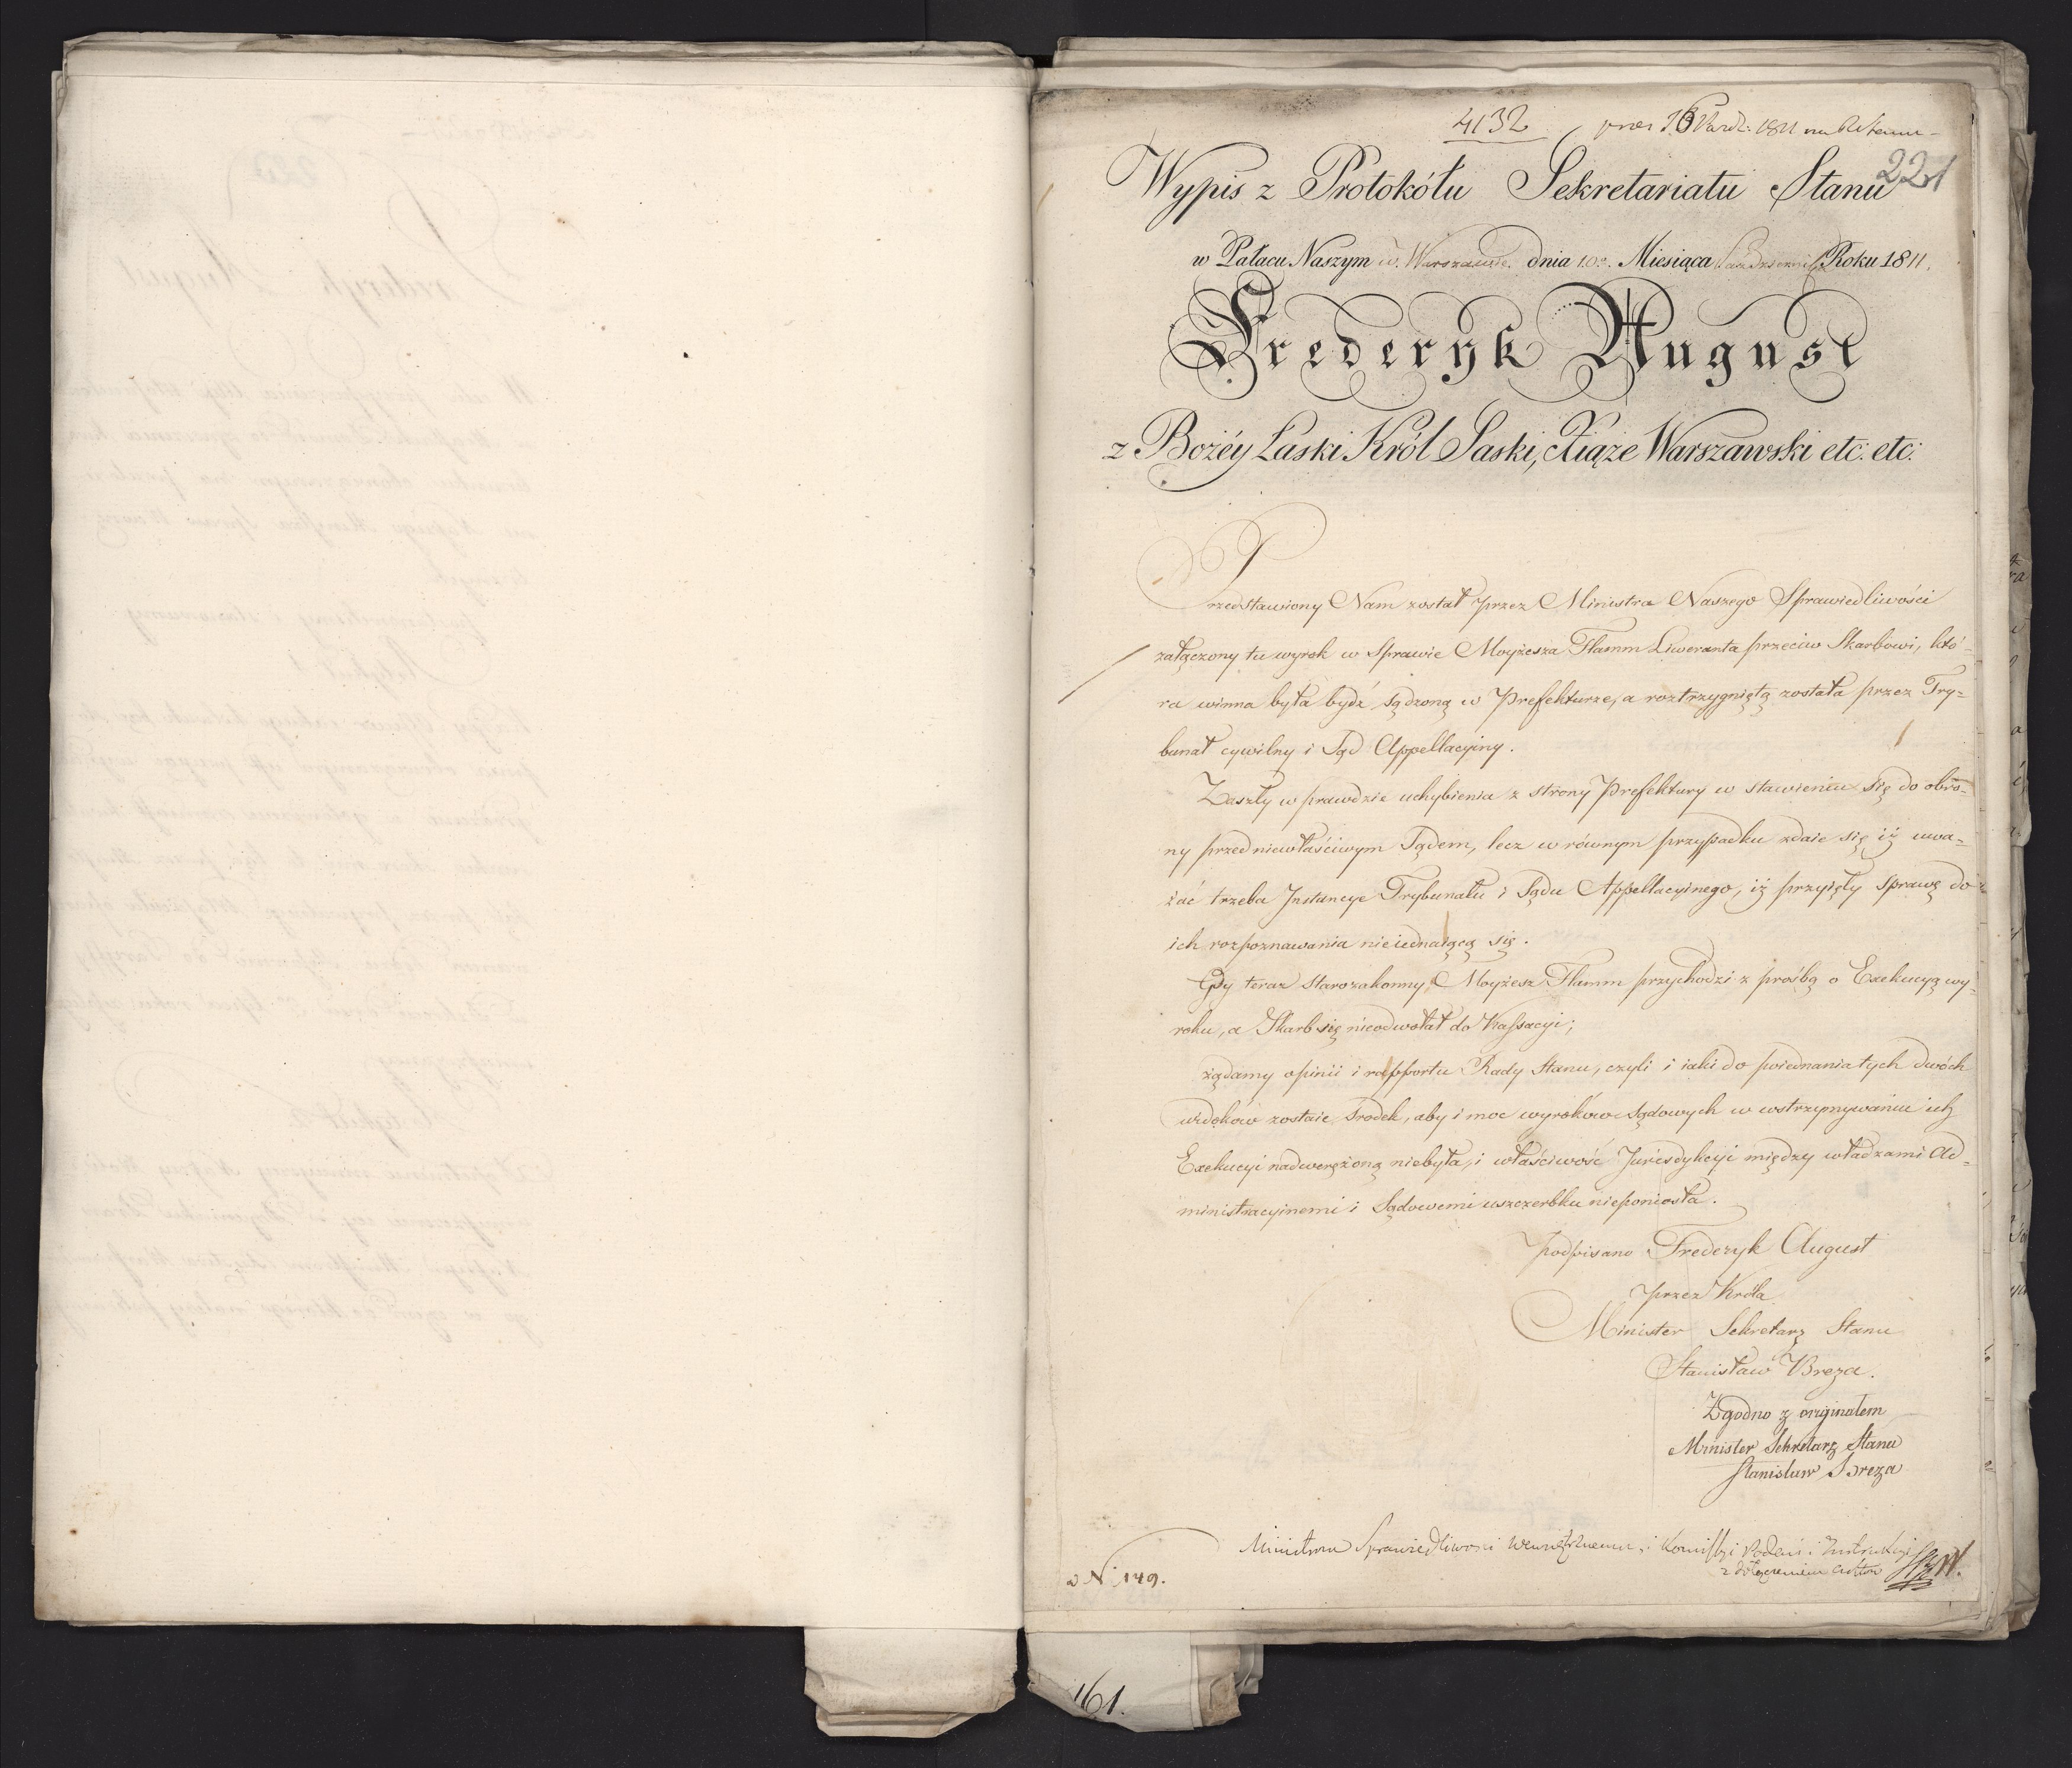 4132
1811
221
Wypis z Protokółu Sekretariatu Stanu
w Pałacu Naszym w Warszawie dnia 10. Miesiąca Października Roku 1811.
Frederyk August
z Bożéy Łaski Król Saski, Xiąże Warszawski etc: etc:
Przedstawiony Nam został przez Ministra Naszego Sprawiedliwości
załączony tu wyrok w Sprawie Moyżesza Flamm Liweranta przeciw Skarbowi, któ-
ra winna była bydź sądzoną w Prefekturze, a roztrzygniętą została przez Try-
bunał cywilny i Sąd Appellacyiny.
Zaszły w prawdzie uchybienia z strony Prefektury w stawieniu się do obro-
ny przed niewłaściwym Sądem, lecz w równym przypadku zdaie się iż uwa-
żać trzeba Instancye Trybunału i Sądu Appellacyinego, iż przyięły sprawę do
ich rozpoznawania nieiednaiącą się.
Gdy teraz starozakonny Moyżesz Flamm przychodzi z proźbą o Exekucyą wy-
roku, a Skarb się nieodwołał do Kassacyi;
żądamy opinii i rapportu Rady Stanu, czyli i iaki do poiednania tych dwóch
widoków zostaie środek, aby i moc wyroków sądowych w wstrzymywaniu ich
Exekucyi nadwerężoną niebyła, i właściwość Jurisdykcyi między władzami Ad-
ministracyinemi i Sądowemi uszczerbku nieponiosła.
Podpisano Frederyk August
przez Króla
Minister Sekretarz Stanu
Stanisław Breza.
Zgodno z originałem
Minister Sekretarz Stanu
Stanisław Breza
Sprawiedliwości i i
N. 149.
z dołączeniem
161.